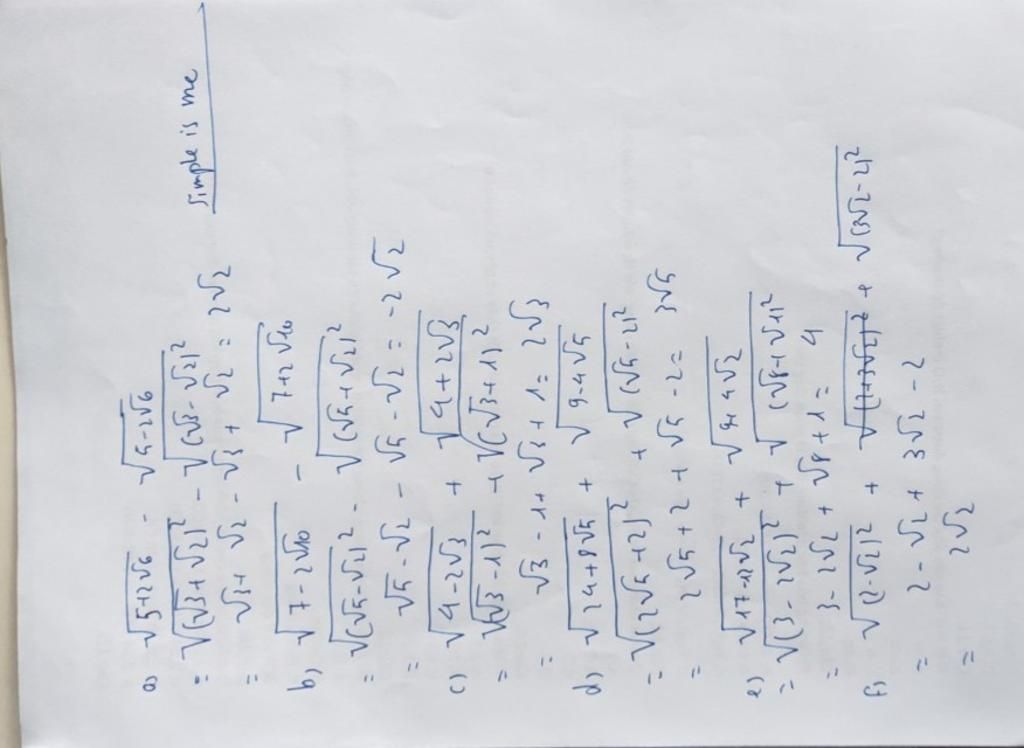 simple is me
a) √(5+2√6) - √(5-2√6)
= √(√3+√2)² - √(√3-√2)²
= √3+ √2 - √3 + √2 = 2√2
b) √(7-2√10) - √(7+2√10)
= √(√5-√2)² - √(√5+√2)²
= √5-√2 - √5-√2 = -2√2
c) √(4-2√3) + √(4+2√3)
= √(√3-1)² + √(√3+1)²
= √3-1+ √3+1= 2√3
d) √(24+8√5) + √(9-4√5)
= √(2√5+2)² + √(√5-2)²
= 2√5+2 + √5-2= 3√5
e) √(17-12√2) + √(9+4√2)
= √(3-2√2)² + √(√8+√1)²
= 3-2√2 + √8+1= 4
f) √(2-√2)² + √(3√2-2)²
= 2-√2 + 3√2-2
= 2√2